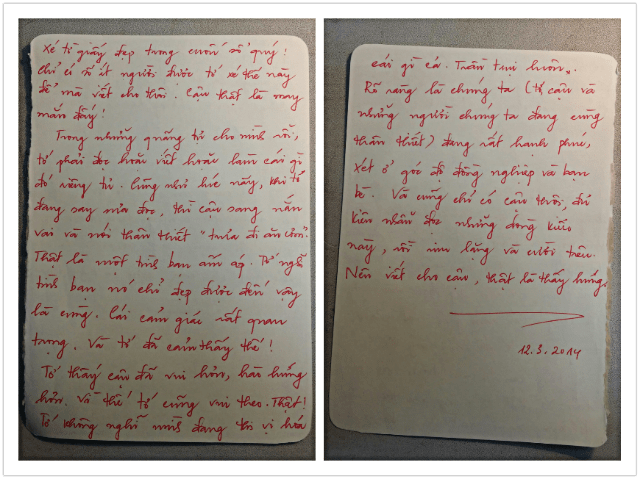 Xé tờ giấy đẹp trong cuốn sổ quý!
Chỉ có số ít người được tớ xé thế này
để mà viết cho thôi. Cậu thật là may
mắn đấy!
Trong những quãng tự cho mình rỗi,
tớ phải đọc hoặc viết hoặc làm cái gì
đó riêng tư. Cũng như lúc này, khi tớ
đang say sưa đọc, thì cậu sang nắm
vai và nói thân thiết "trưa đi ăn cơm".
Thật là một tình bạn ấm áp. Tớ nghĩ
tình bạn nó chỉ đẹp được đến vậy
là cùng. Cái cảm giác rất quan
trọng. Và tớ đã cảm thấy thế!
Tớ thấy cậu đã vui hơn, hào hứng
hơn. Vì thế tớ cũng vui theo. Thật!
Tớ không nghĩ mình đang thi vị hóa
cái gì cả. Trần trụi luôn.
Rõ ràng là chúng ta (tớ, cậu và
những người chúng ta đang cùng
thân thiết) đang rất hạnh phúc,
xét ở góc độ đồng nghiệp và bạn
bè. Và cũng chỉ có cậu thôi, đủ
kiên nhẫn đọc những dòng kiểu
này, rồi im lặng và cười trêu.
Nên viết cho cậu, thật là thấy hứng.
12.3.2014